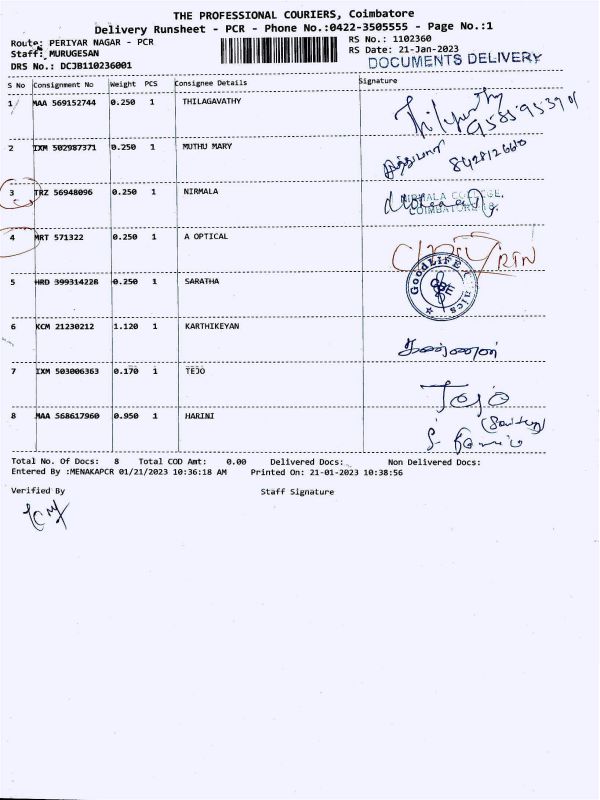 THE PROFESSIONAL COURIERS, Coimbatore
Delivery Runsheet - PCR - Phone No.:0422-3505555 - Page No.:1
Route: PERIYAR NAGAR - PCR RS No.: 1102360
Staff: MURUGESAN RS Date: 21-Jan-2023
DRS No.: DCJB110236001 DOCUMENTS DELIVERY
S No Consignment No Weight PCS Consignee Details Signature
1 MAA 569152744 0.250 1 THILAGAVATHY
9585953901
2 IXM 502987371 0.250 1 MUTHU MARY முத்துமாரி 842812660
3 TRZ 56948096 0.250 1 NIRMALA NIRMALA COLLEGE,
COIMBATORE-18
4 MRT 571322 0.250 1 A OPTICAL RTN
5 HRD 399314228 0.250 1 SARATHA GOODLIFE Clinics
6 KCM 21230212 1.120 1 KARTHIKEYAN கண்ணன்
7 IXM 503006363 0.170 1 TEJO Tejo
8 MAA 568617960 0.950 1 HARINI
Total No. Of Docs: 8 Total COD Amt: 0.00 Delivered Docs: Non Delivered Docs:
Entered By :MENAKAPCR 01/21/2023 10:36:18 AM Printed On: 21-01-2023 10:38:56
Verified By Staff Signature